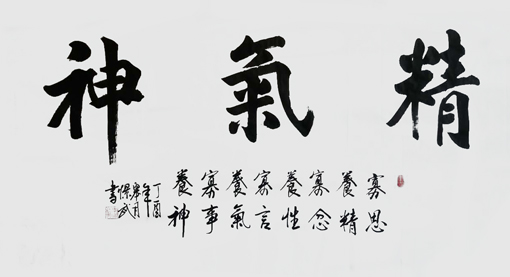 精氣神
寡思
養精
寡念
養性
寡言
養氣
寡事
養神
丁酉
年
月
武
書